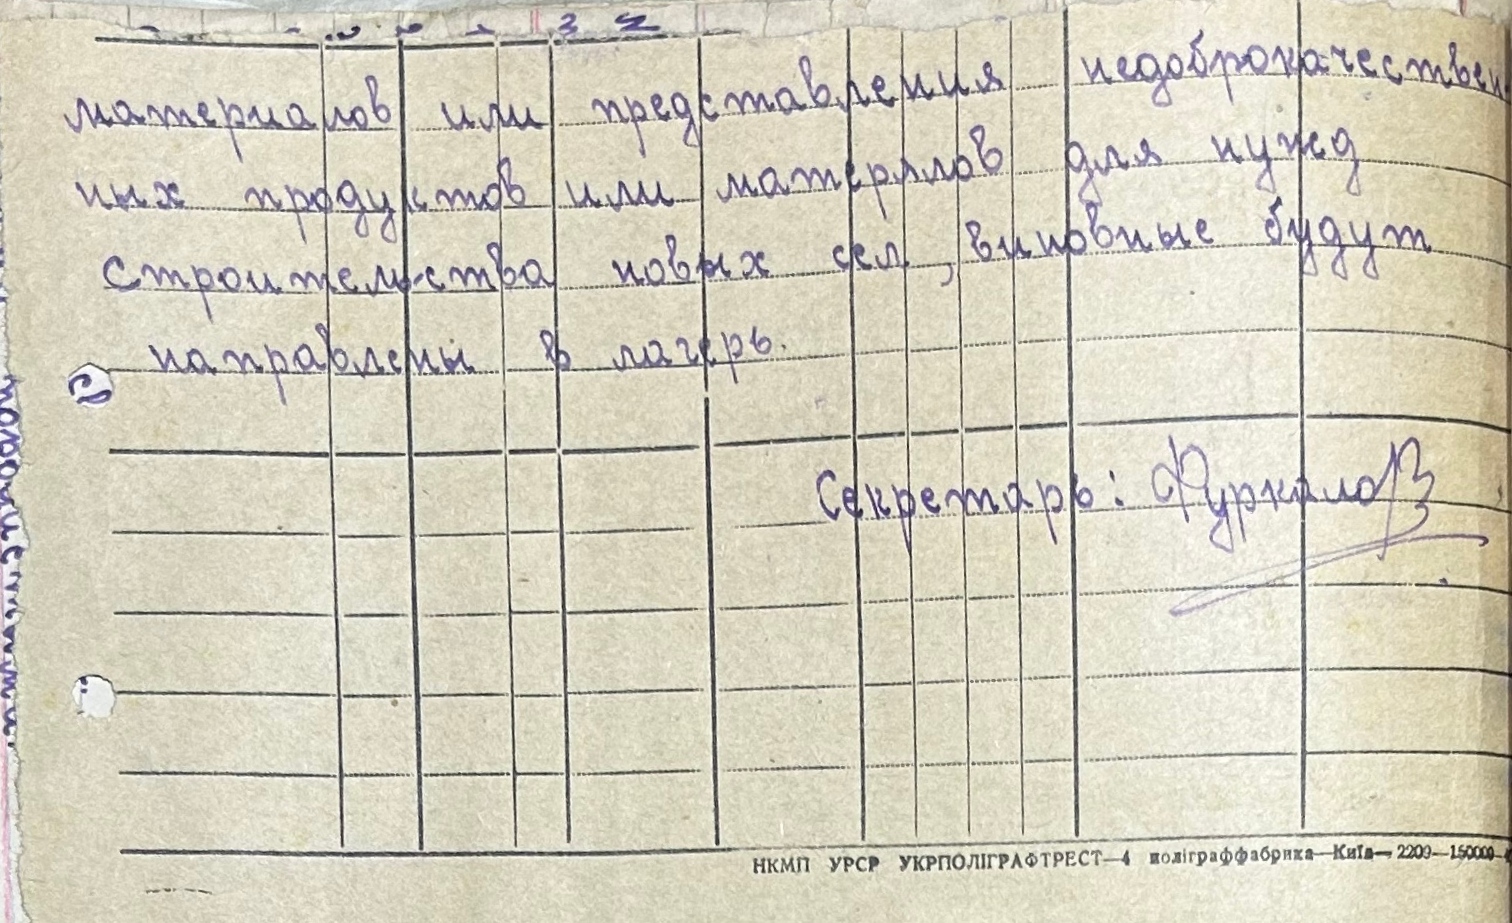 материалов или представления недоброкачествен
ных продуктов или матерялов для нужд
строительства новых сел, виновные будут
направлены в лагерь.
Секретарь: Фуркало
НКМП УРСР УКРПОЛІГРАФТРЕСТ—4 поліграффабрика—Київ—2209—150000